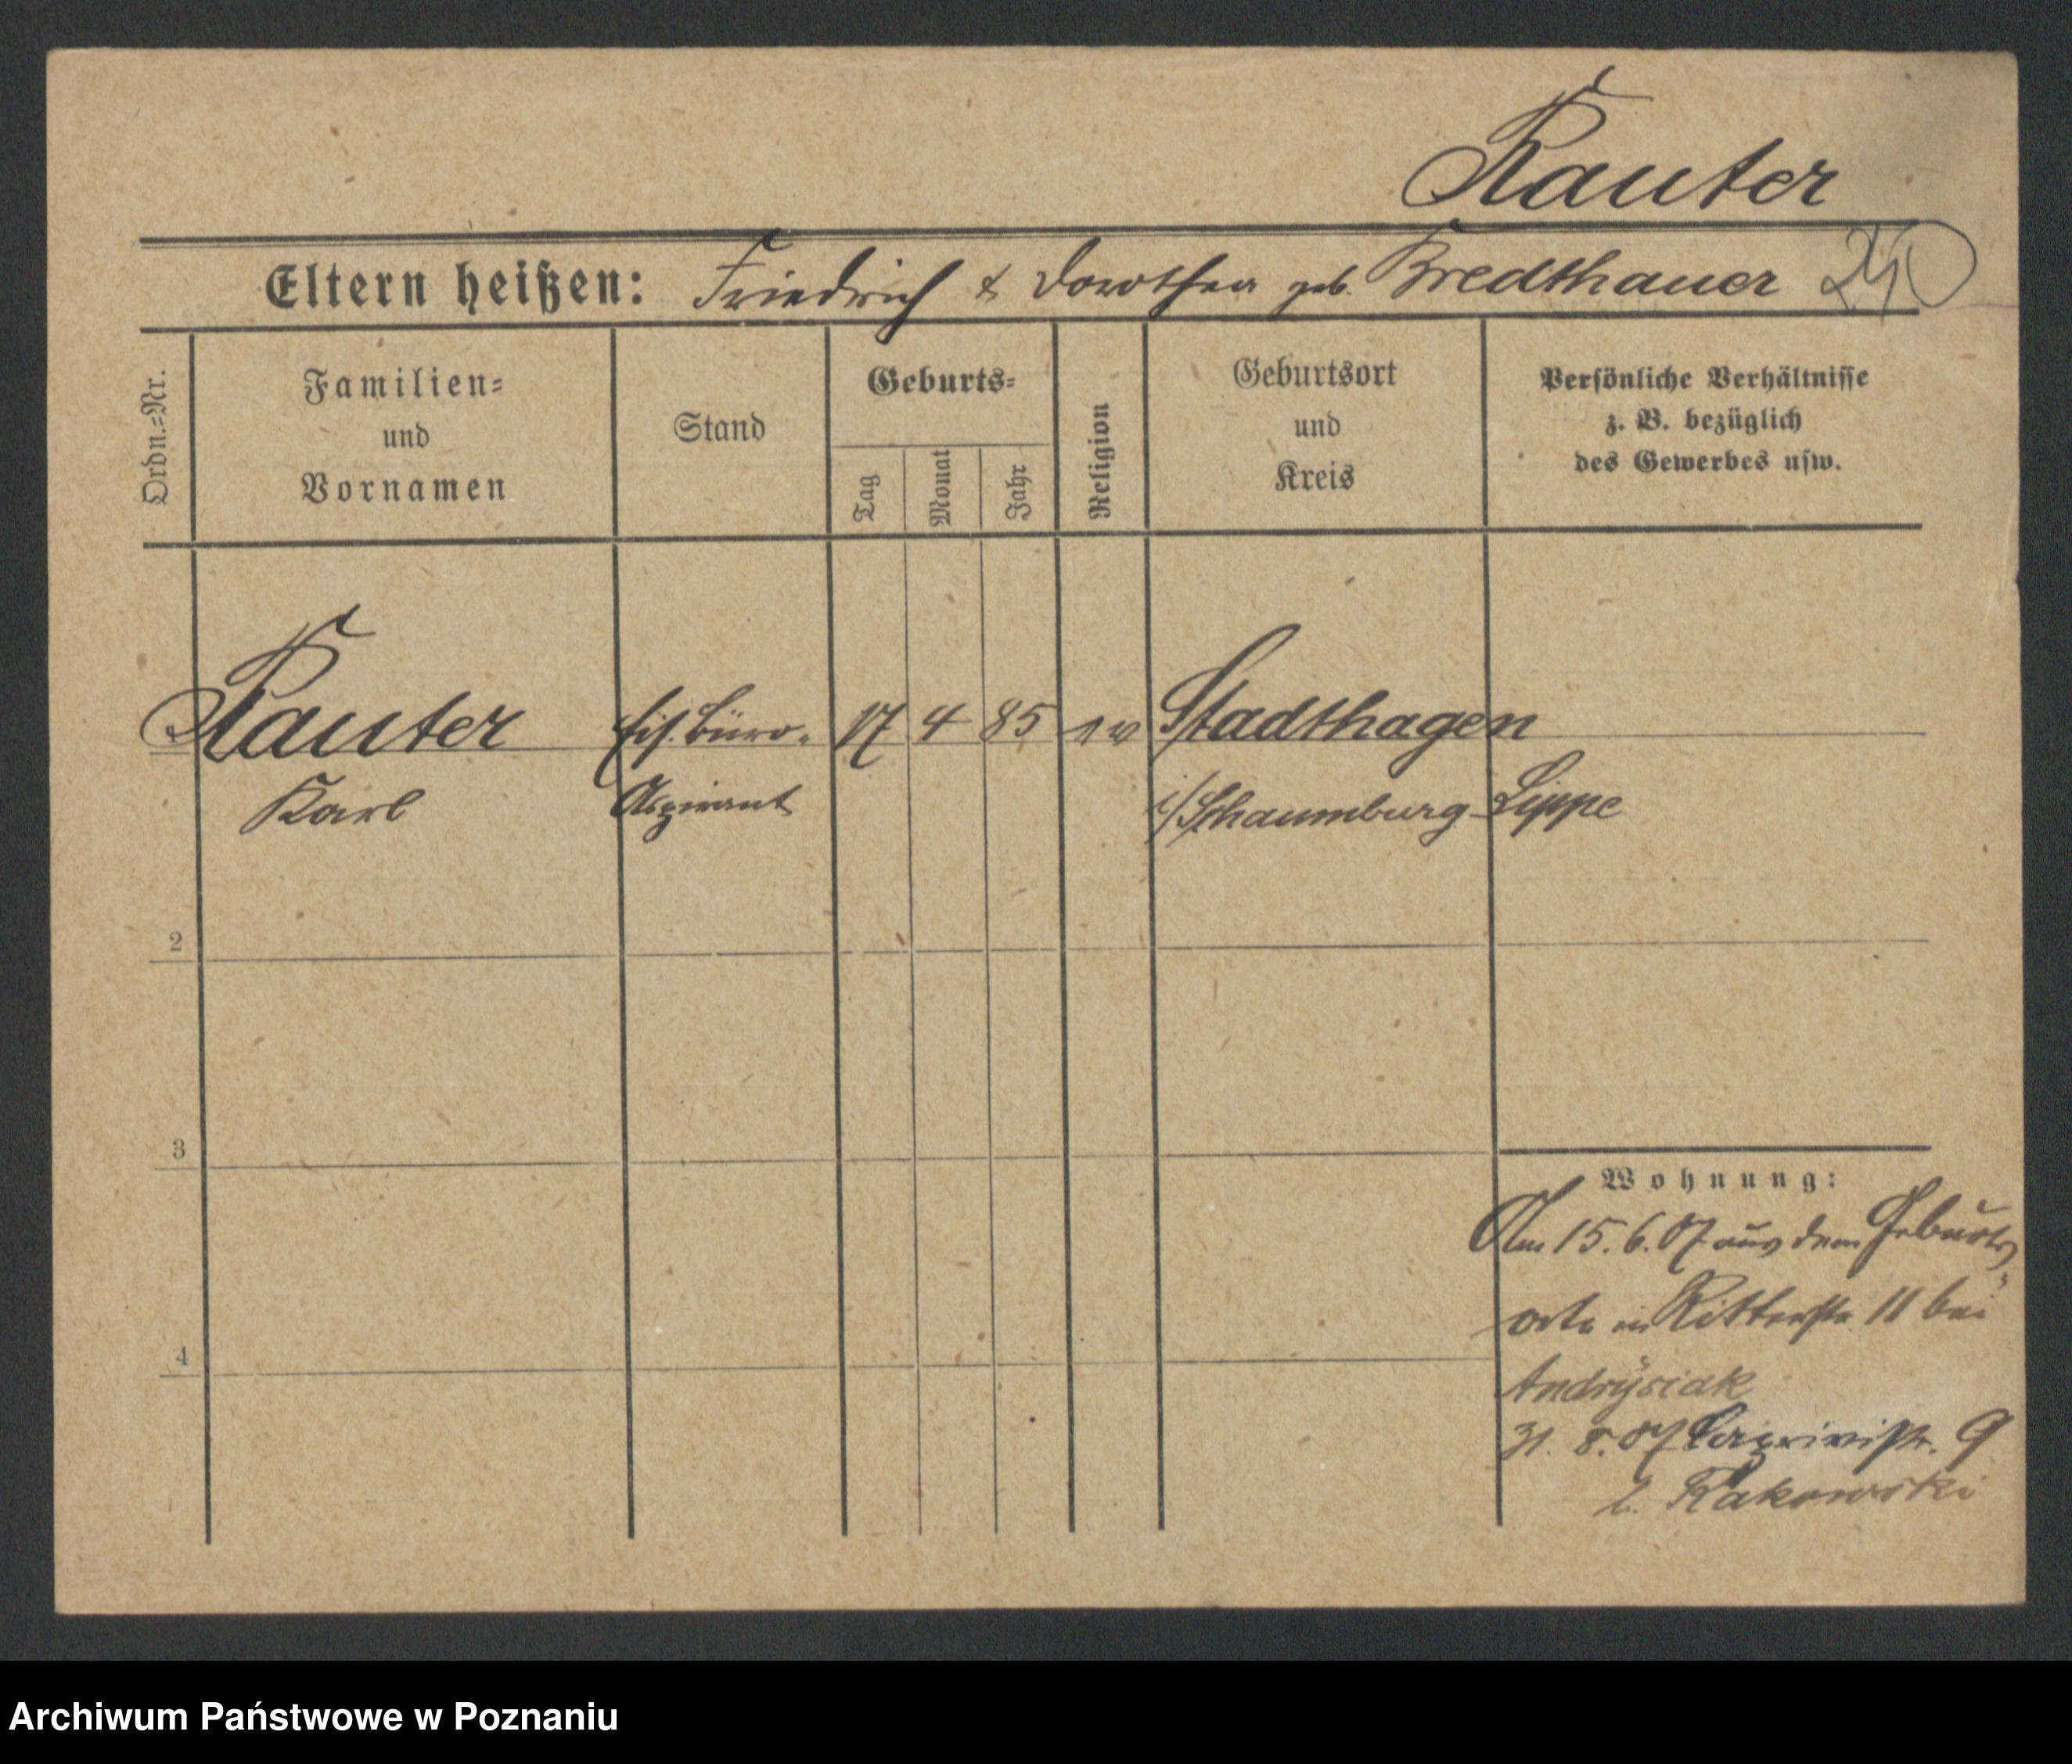 Kauter
Eltern heißen: Friedrich & Dorothea geb. Bredthauer
Ordn.=Nr.
Familien=
und
Vornamen
Stand
Geburts=
Tag
Monat
Jahr
Religion
Geburtsort
und
Kreis
Persönliche Verhältnisse
z. B. bezüglich
des Gewerbes usw.
Kauter Eis. Büro- 17 4 85 ev Stadthagen
Karl Aspirant i/Schaumburg-Lippe
2
3
4
Wohnung:
Am 15.6.07 aus dem Geburts
orte in Ritterstr. 11 bei
Andrysiak
31. 8. 07 Caprivistr. 9
b. Rakowski
Archiwum Państwowe w Poznaniu